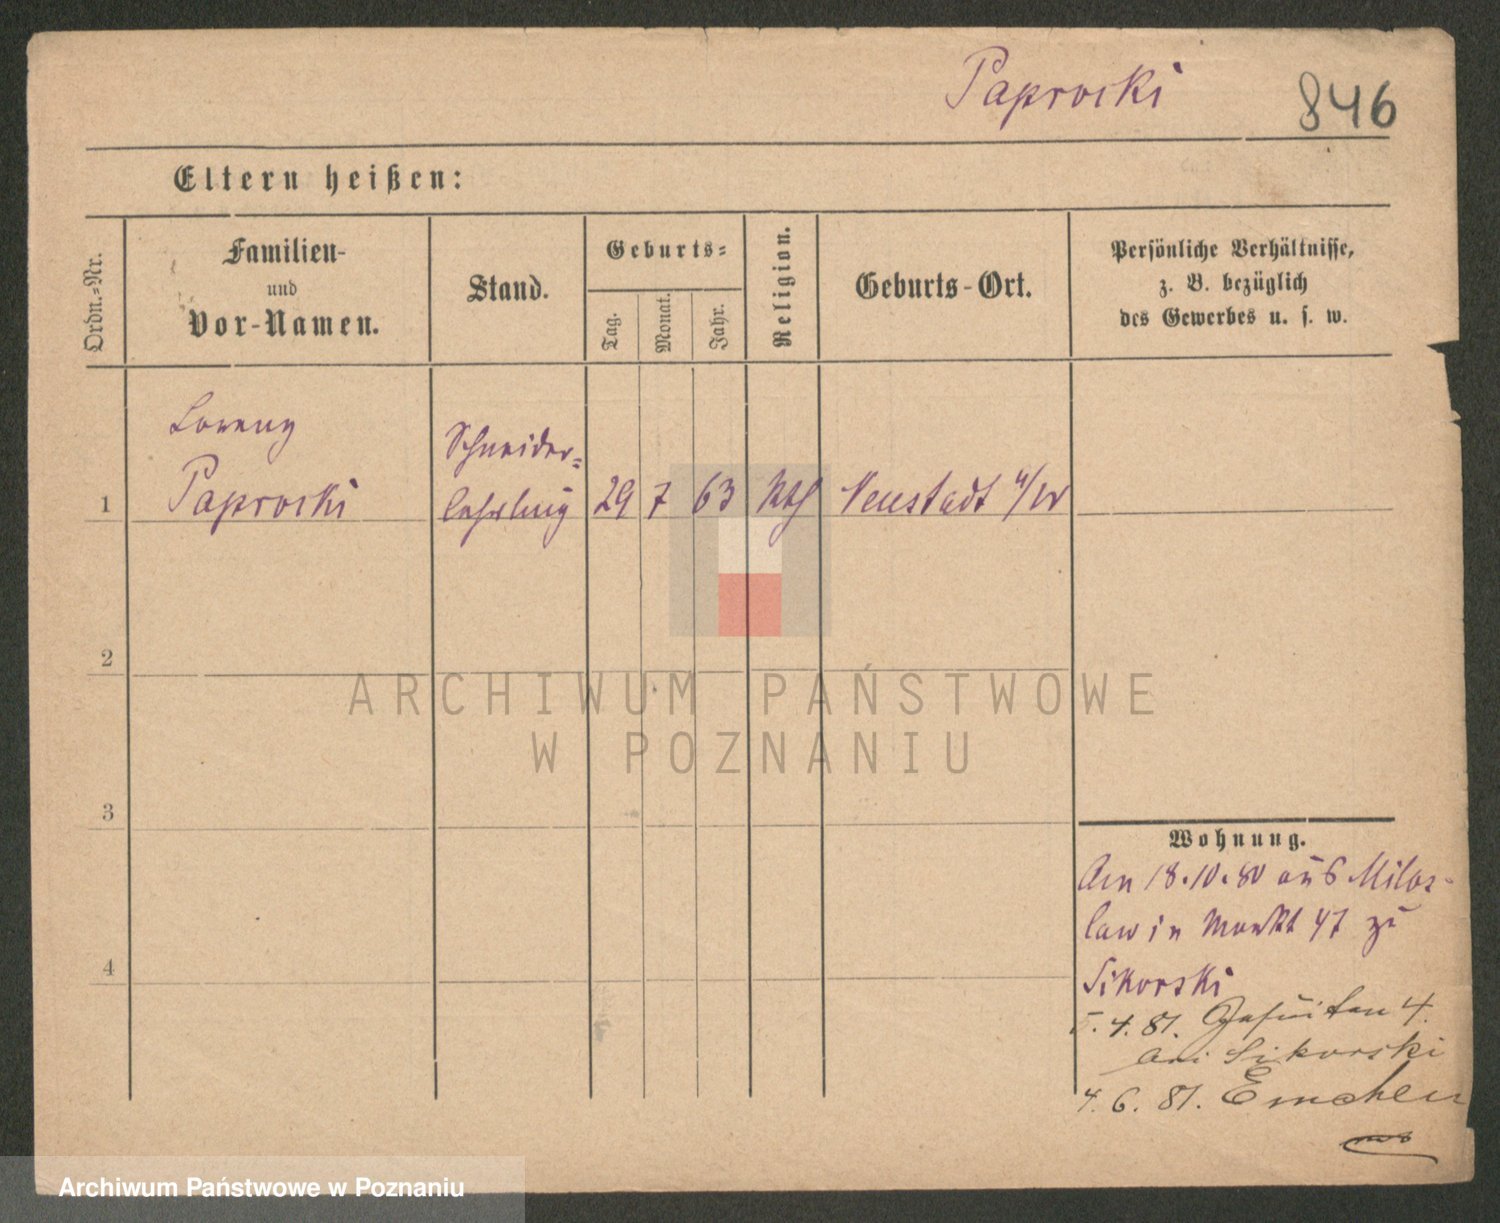 Paprocki
846
Eltern heißen:
Ordn.-Nr.
Familien-
und
Vor-Namen.
Stand.
Geburts-
Tag.
Monat.
Jahr.
Religion.
Geburts-Ort.
Persönliche Verhältnisse,
z. B. bezüglich
des Gewerbes u. s. w.
Lorenz
Paprocki
Schneider-
lehrling
1
29
7
63
kth
Neustadt a/W
2
3
4
Wohnung.
Am 18.10.80 aus Milos-
law in Markt 47 zu
Sikorski
5.4.81. Jesuiten 4.
bei Sikorski
4.6.81.
ARCHIWUM PAŃSTWOWE
W POZNANIU
Archiwum Państwowe w Poznaniu